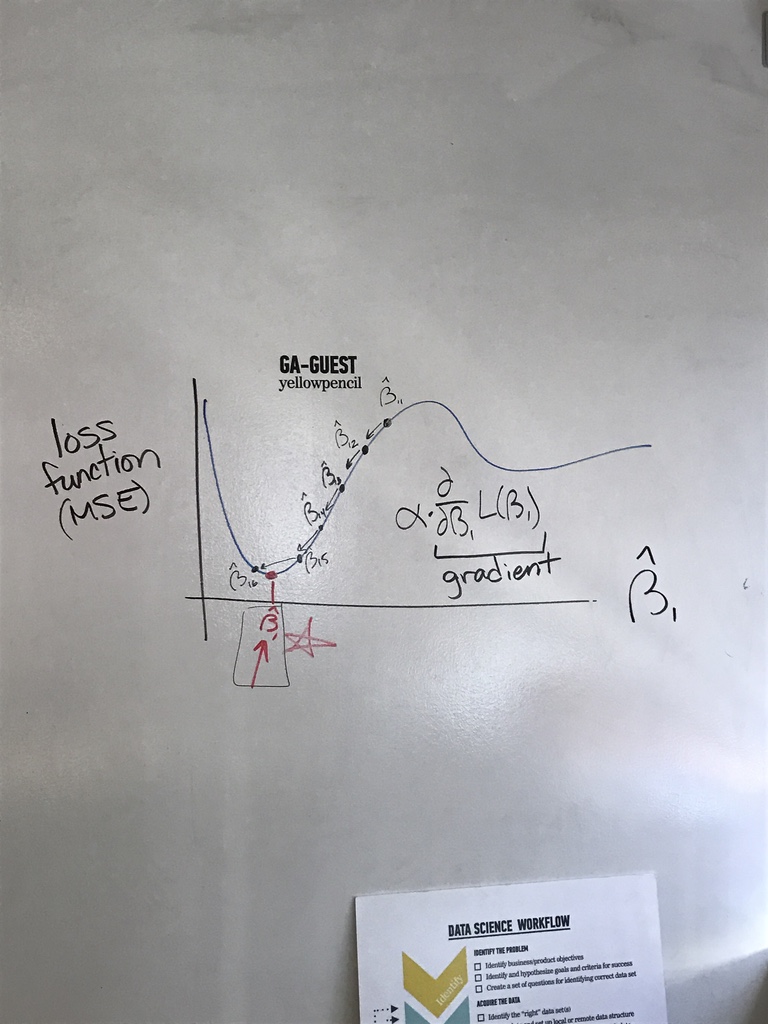 GA-GUEST
yellowpencil
loss
function
(MSE)
β̂₁₁
β̂₁₂
β̂₁₃
β̂₁₄
β₁₅
β̂₁₆
α · ∂/∂β₁ L(β₁)
gradient
β̂₁
β̂₁
DATA SCIENCE WORKFLOW
Identify
IDENTIFY THE PROBLEM
☐ Identify business/product objectives
☐ Identify and hypothesize goals and criteria for success
☐ Create a set of questions for identifying correct data set
ACQUIRE THE DATA
☐ Identify the "right" data set(s)
set on local or remote data structure